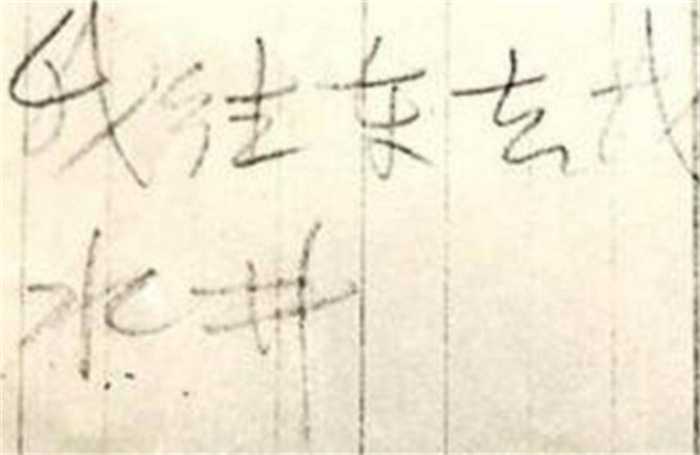 我往东去找
水井